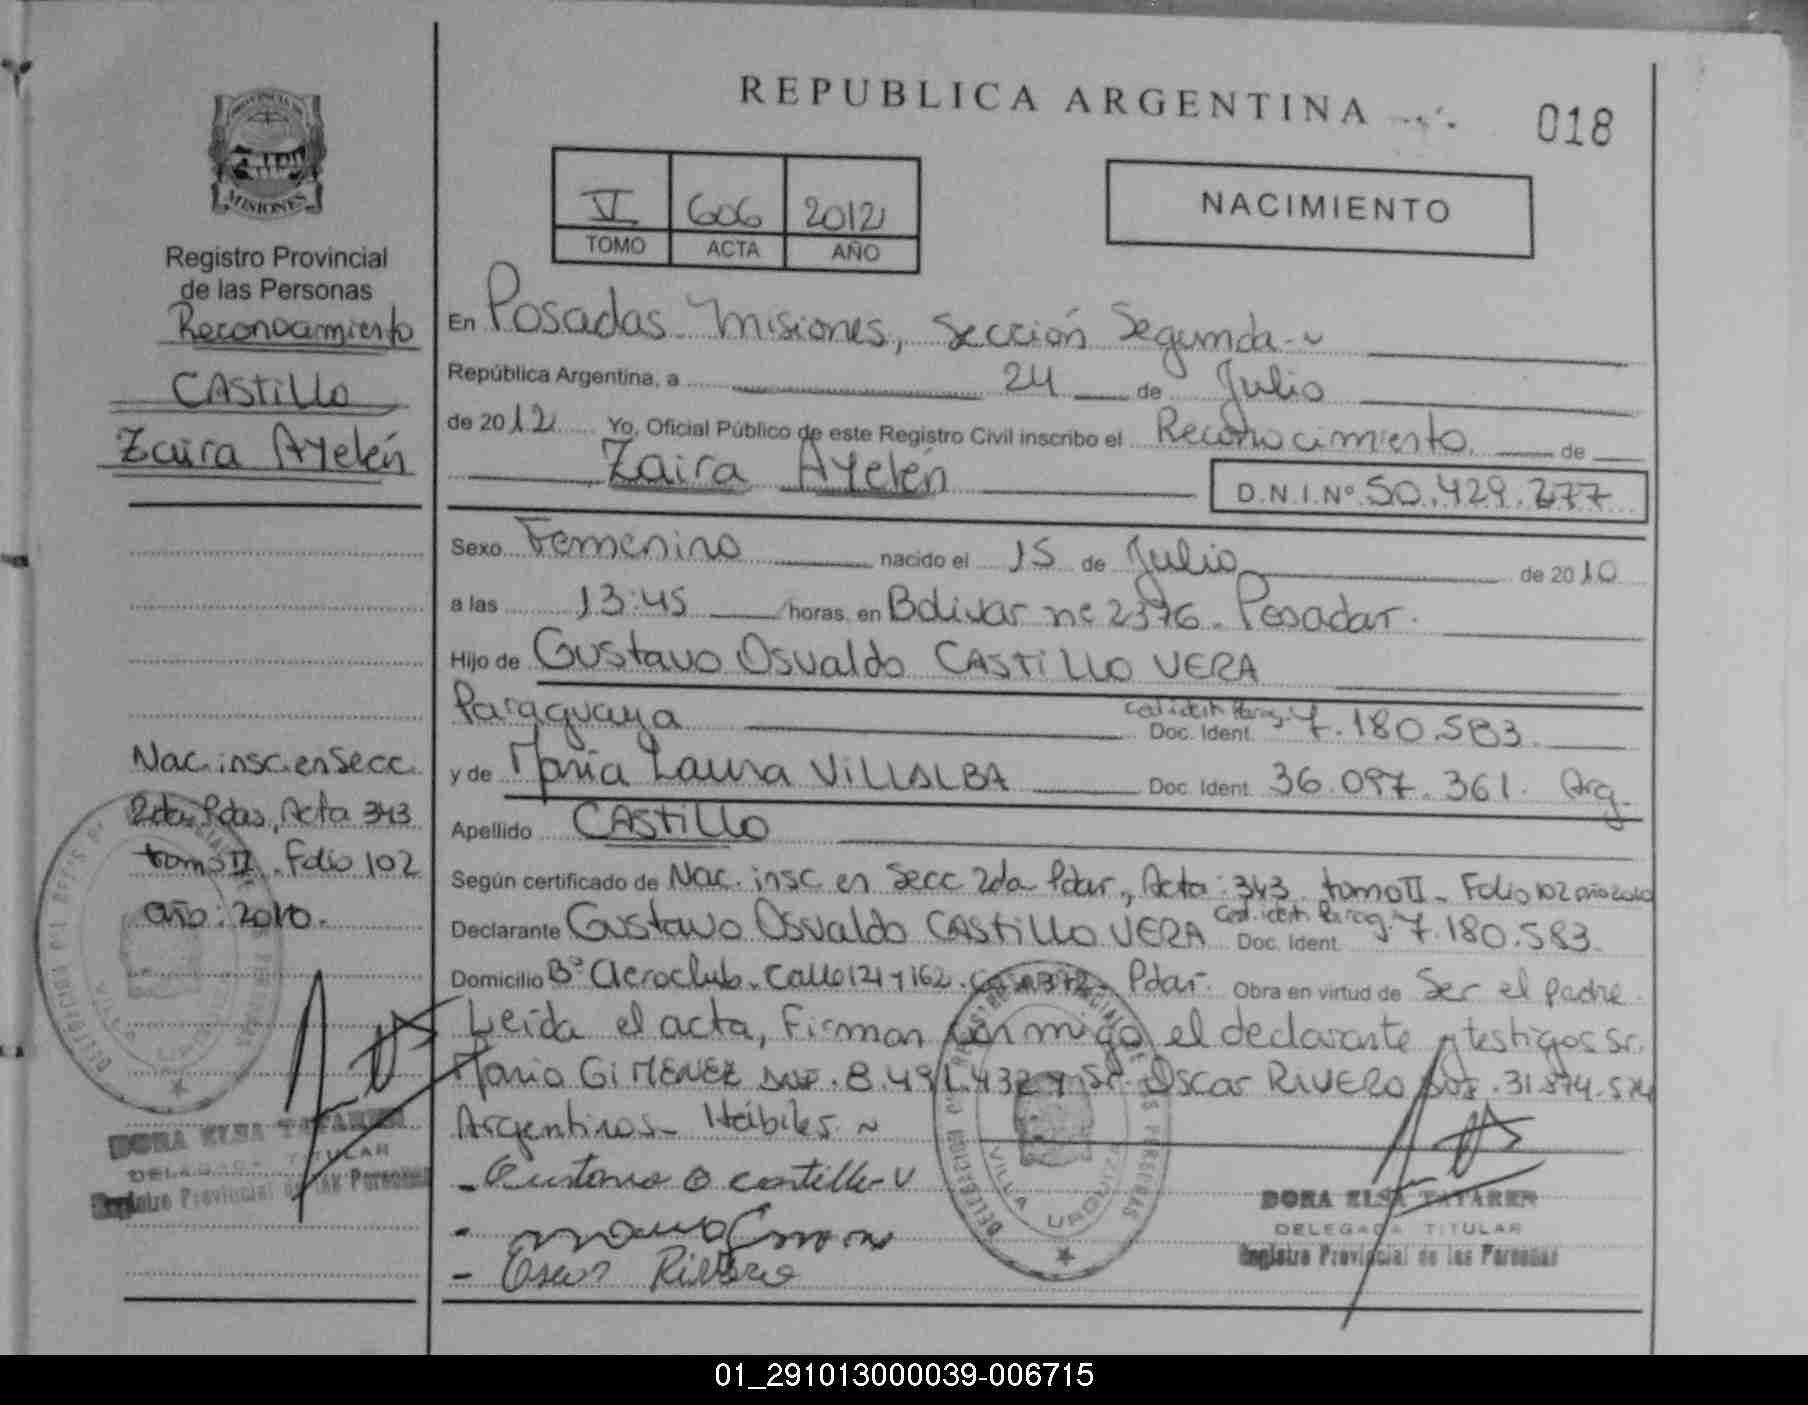 REPUBLICA ARGENTINA
018
PROVINCIA DE
MISIONES
Registro Provincial
de las Personas
Reconocimiento
CASTILLO
Zaira Ayelén
VI 606 2012
TOMO ACTA AÑO
NACIMIENTO
En Posadas Misiones, Sección Segunda
República Argentina, a 24 de Julio
de 2012 Yo, Oficial Público de este Registro Civil inscribo el Reconocimiento de
Zaira Ayelén D.N.I.Nº 50.429.277
Sexo Femenino nacido el 15 de Julio de 2010
a las 13:45 horas, en Bolivar nº 2376. Posadas.
Hijo de Gustavo Osvaldo CASTILLO VERA
Paraguaya Ced. ident. Parag. Doc. Ident. 7.180.583
y de Maria Laura VILLALBA Doc. Ident. 36.097.361. Arg.
Apellido CASTILLO
Según certificado de Nac. insc en Secc 2da Pdas, Acta: 343 tomo II - Folio 102 año 2010
Declarante Gustavo Osvaldo CASTILLO VERA Ced. ident. Parag. Doc. Ident. 7.180.583
Domicilio Bº Aeroclub. Calle 121 y 162. Pdas. Obra en virtud de Ser el padre
Leida el acta, Firman con migo el declarante y testigos Sr.
Mario GIMENEZ DNI. 8.491.432 y Sr. Oscar RIVERO DNI. 31.874.574
Argentinos - Hábiles ~
- Gustavo O castillo V
- Oscar Rivero
Nac. insc. en Secc.
2da Pdas, Acta 343
tomo II. Folio 102
año: 2010.
DORA ELSA TATAREN
DELEGADA TITULAR
Registro Provincial de las Personas
VILLA URQUIZA
DORA ELSA TATAREN
DELEGADA TITULAR
Registro Provincial de las Personas
01_291013000039-006715